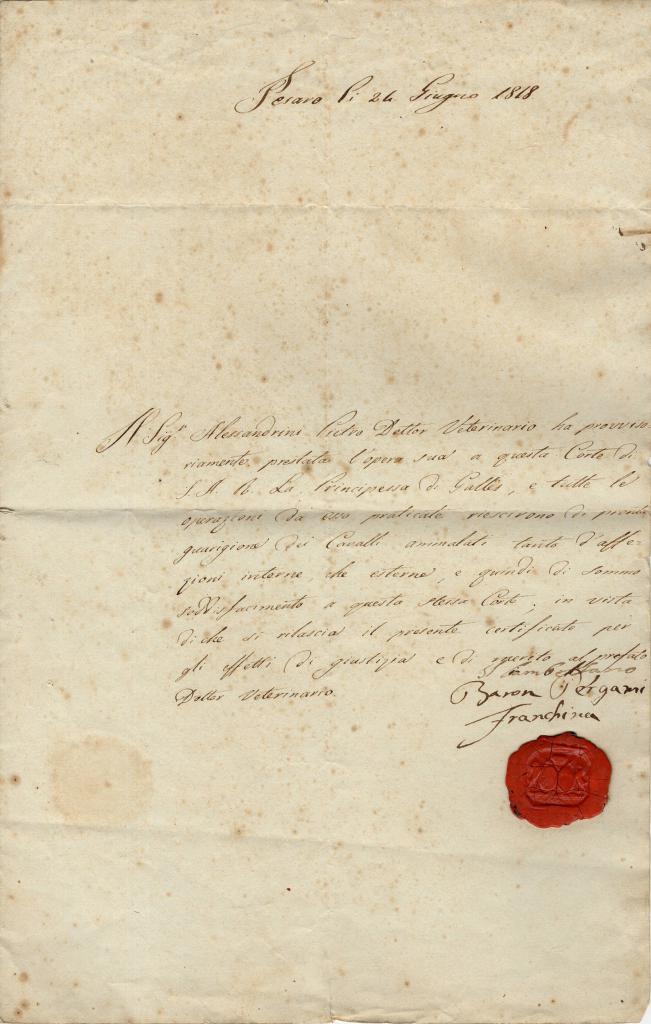 Pesaro li 24 Giugno 1818
Il Sigr Alessandrini Pietro Dottor Veterinario ha provviso-
riamente prestata l'opera sua a questa Corte di
S. A. R. La Principessa di Galles, e tutte le
operazioni da esso praticate riescirono di pronta
guarigione dei Cavalli ammalati tanto d'affe-
zioni interne, che esterne, e quindi di sommo
soddisfacimento a questa stessa Corte; in vista
di che si rilascia il presente certificato per
gli effetti di giustizia e di merito al prefato
Dottor Veterinario.
Baron Pergami
Franchina